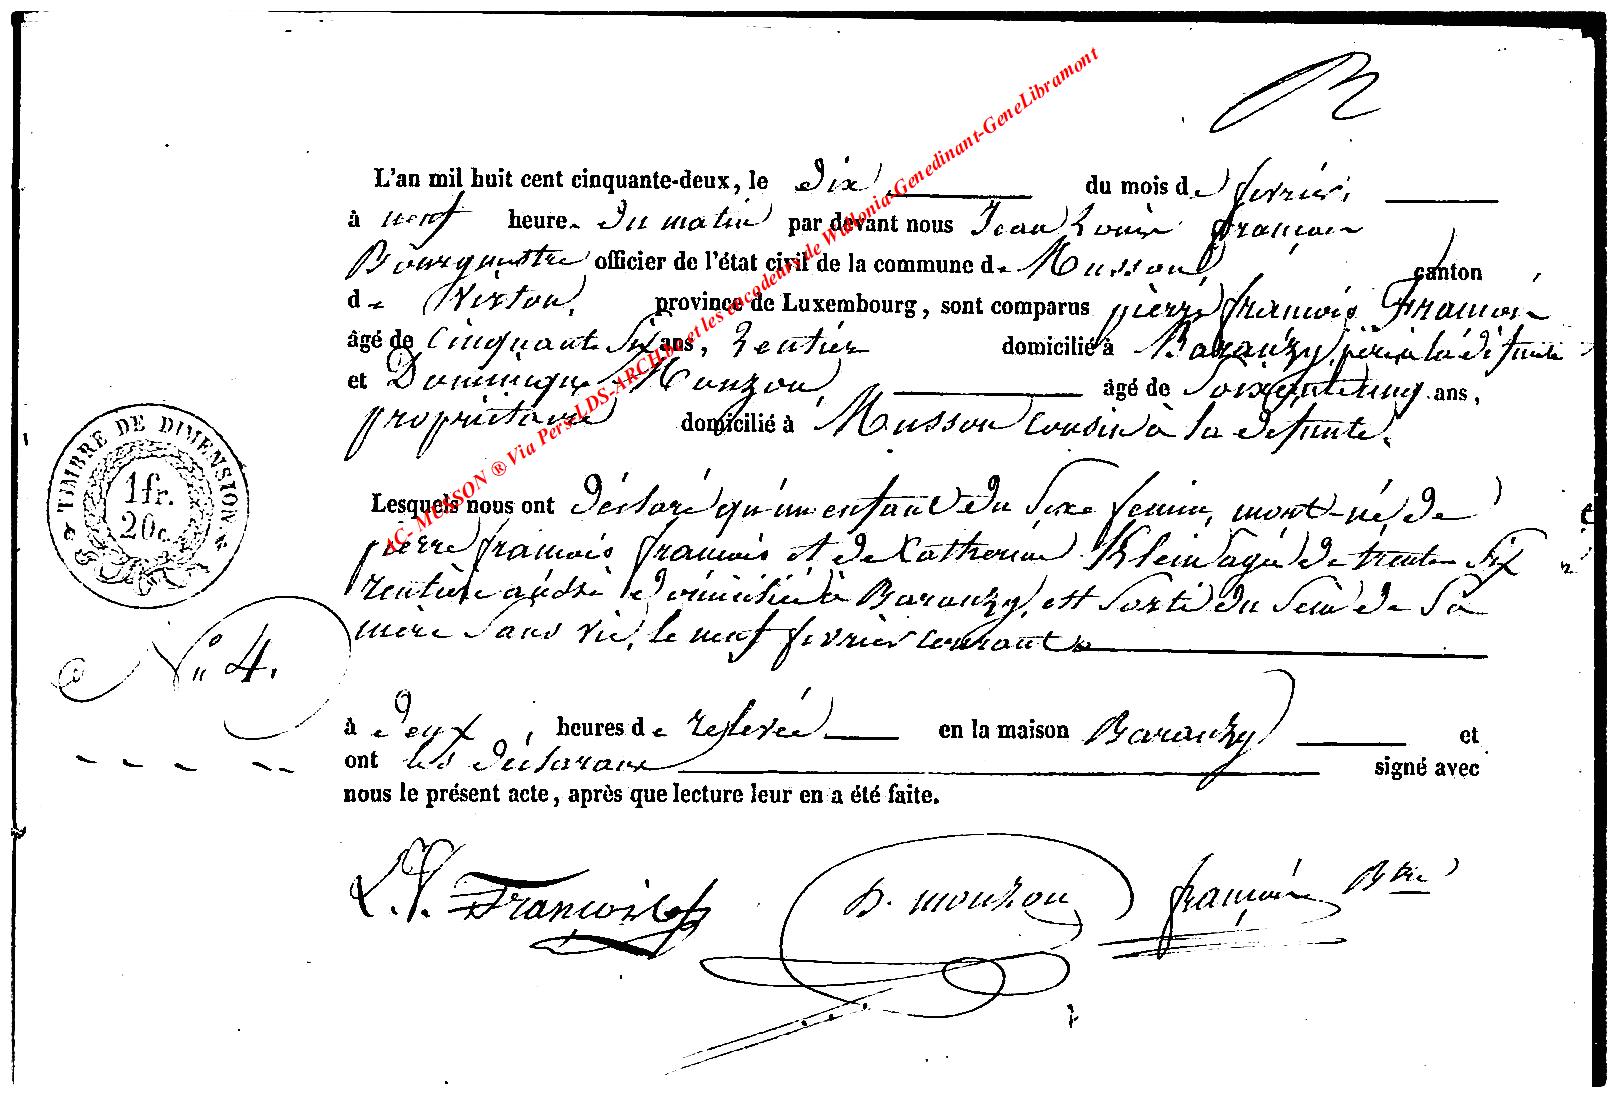 L'an mil huit cent cinquante-deux, le dix du mois de fevrier,
à neuf heure du matin par devant nous Jean Louis françois
Bourguestre officier de l'état civil de la commune de Musson, canton
de Virton, province de Luxembourg, sont comparus pierre françois François
âgé de cinquante six ans, rentier domicilié à Baranzy, père à la défunte
et Dominique Monzon, âgé de soixante cinq ans,
propriétaire domicilié à Musson cousin à la defunte.
TIMBRE DE DIMENSION.
1 fr.
20 c.
Lesquels nous ont déclaré qu'un enfant du sexe feminin, mort-né, de
pierre françois françois et de Catherine Klein agée de trente six
rentière audsi domiciliée à Baranzy, est sorti du sein de sa
mère sans vie, le neuf fevrier courant
N° 4.
à deux, heures de relevée en la maison Baranzy et
ont les déclarans signé avec
nous le présent acte, après que lecture leur en a été faite.
françois
D. monzon
françois Btre
AC- MUSSON ® Via Pers-LDS-ARCHBe et les encodeurs de Wallonia-Genedinant-GeneLibramont